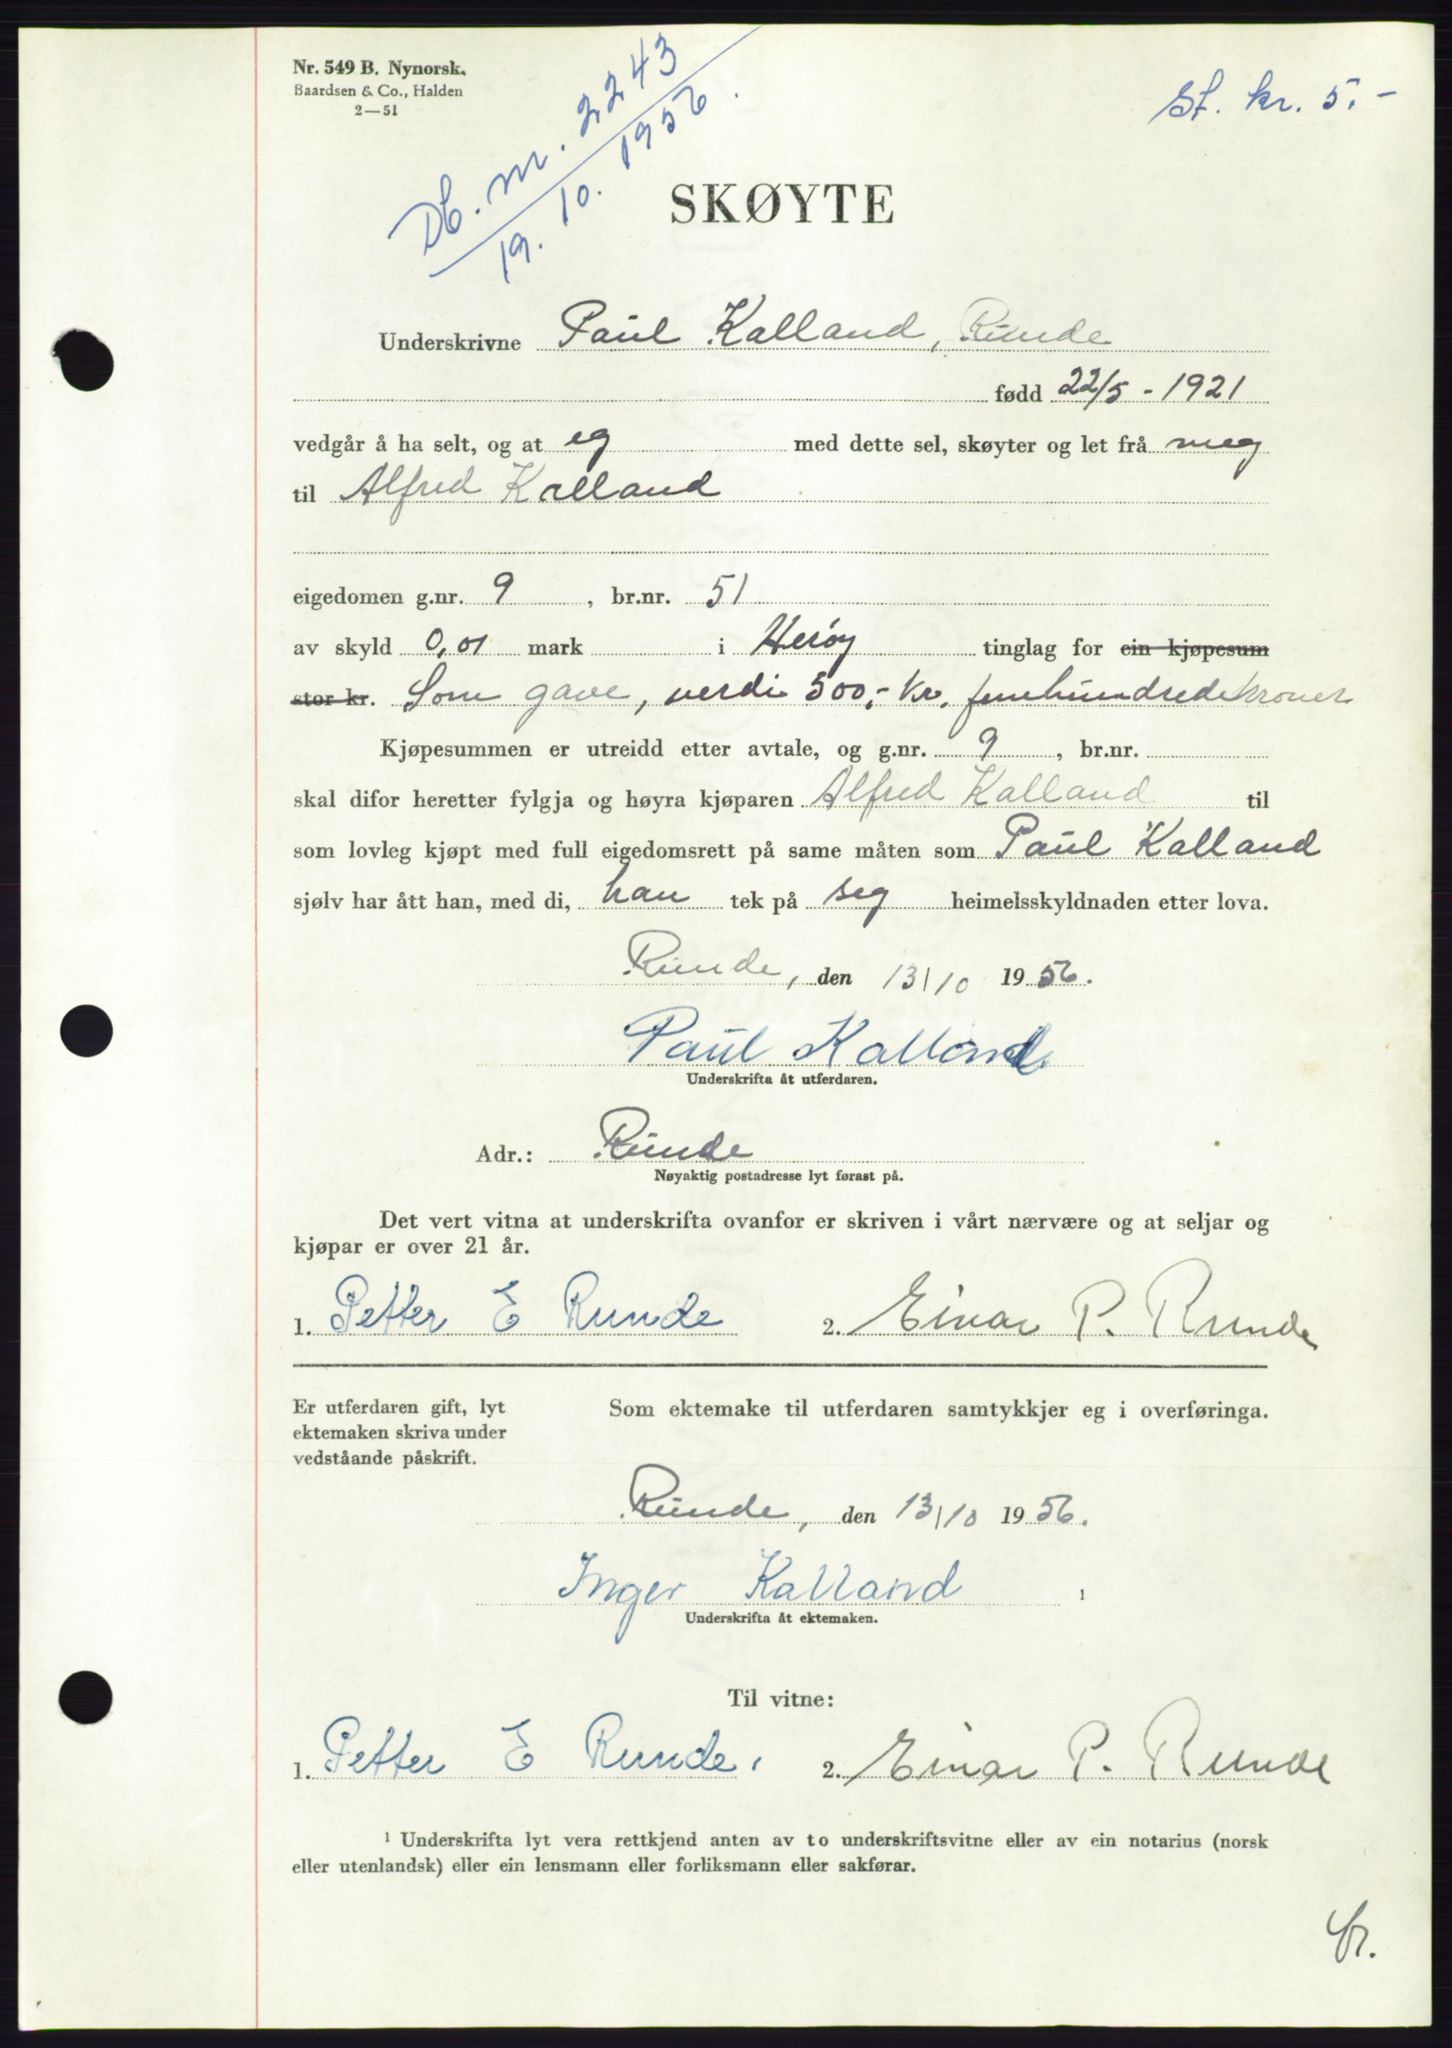 Nr. 549 B. Nynorsk.
Baardsen & Co., Halden
2—51
Db. nr. 2243
19. 10. 1956.
St. kr. 5.-
SKØYTE
Underskrivne Paul Kalland, Runde
fødd 22/5 - 1921
vedgår å ha selt, og at eg med dette sel, skøyter og let frå meg
til Alfred Kalland
eigedomen g.nr. 9, br.nr. 51
av skyld 0,01 mark i Herøy tinglag for ein kjøpesum
stor kr. Som gave, verdi 500,- kr. femhundredekroner
Kjøpesummen er utreidd etter avtale, og g.nr. 9, br.nr.
skal difor heretter fylgja og høyra kjøparen Alfred Kalland til
som lovleg kjøpt med full eigedomsrett på same måten som Paul Kalland
sjølv har ått han, med di, han tek på seg heimelsskyldnaden etter lova.
Runde, den 13/10 1956.
Paul Kalland
Underskrifta åt utferdaren.
Adr.: Runde
Nøyaktig postadresse lyt førast på.
Det vert vitna at underskrifta ovanfor er skriven i vårt nærvære og at seljar og
kjøpar er over 21 år.
1. Petter E Runde 2. Einar P. Runde
Er utferdaren gift, lyt
ektemaken skriva under
vedståande påskrift.
Som ektemake til utferdaren samtykkjer eg i overføringa.
Runde, den 13/10 1956.
Inger Kalland 1
Underskrifta åt ektemaken.
Til vitne:
1. Petter E Runde. 2. Einar P. Runde
1 Underskrifta lyt vera rettkjend anten av to underskriftsvitne eller av ein notarius (norsk
eller utenlandsk) eller ein lensmann eller forliksmann eller sakførar.